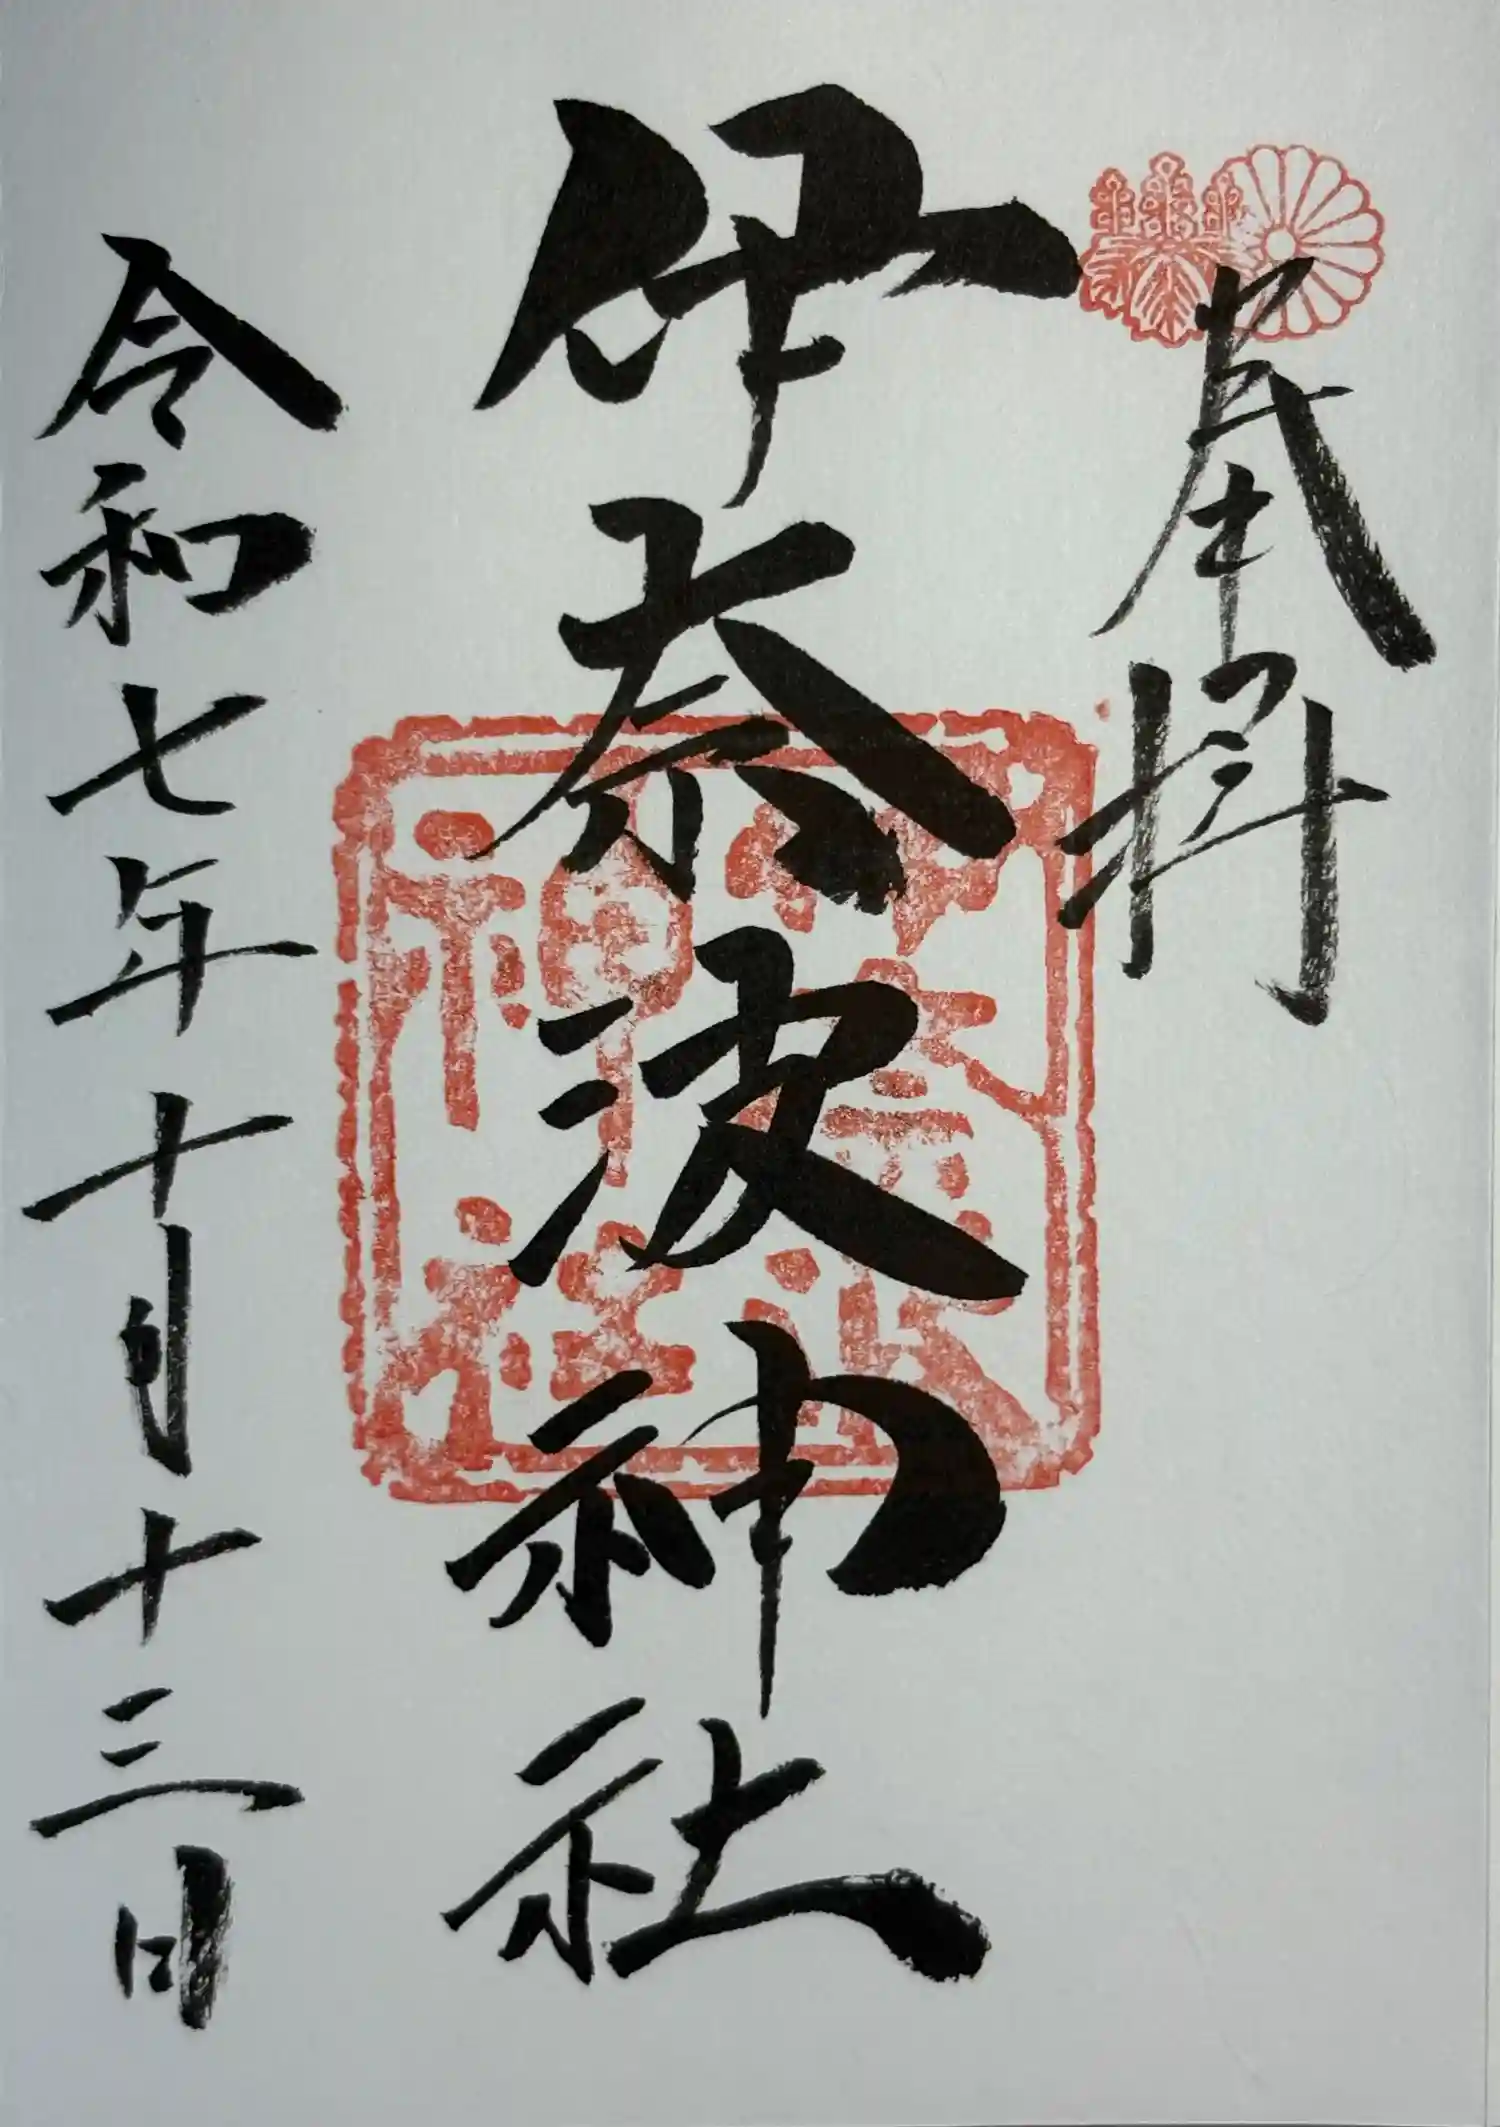 奉拝
伊奈波神社
伊奈波
神社
令和七年十月十三日